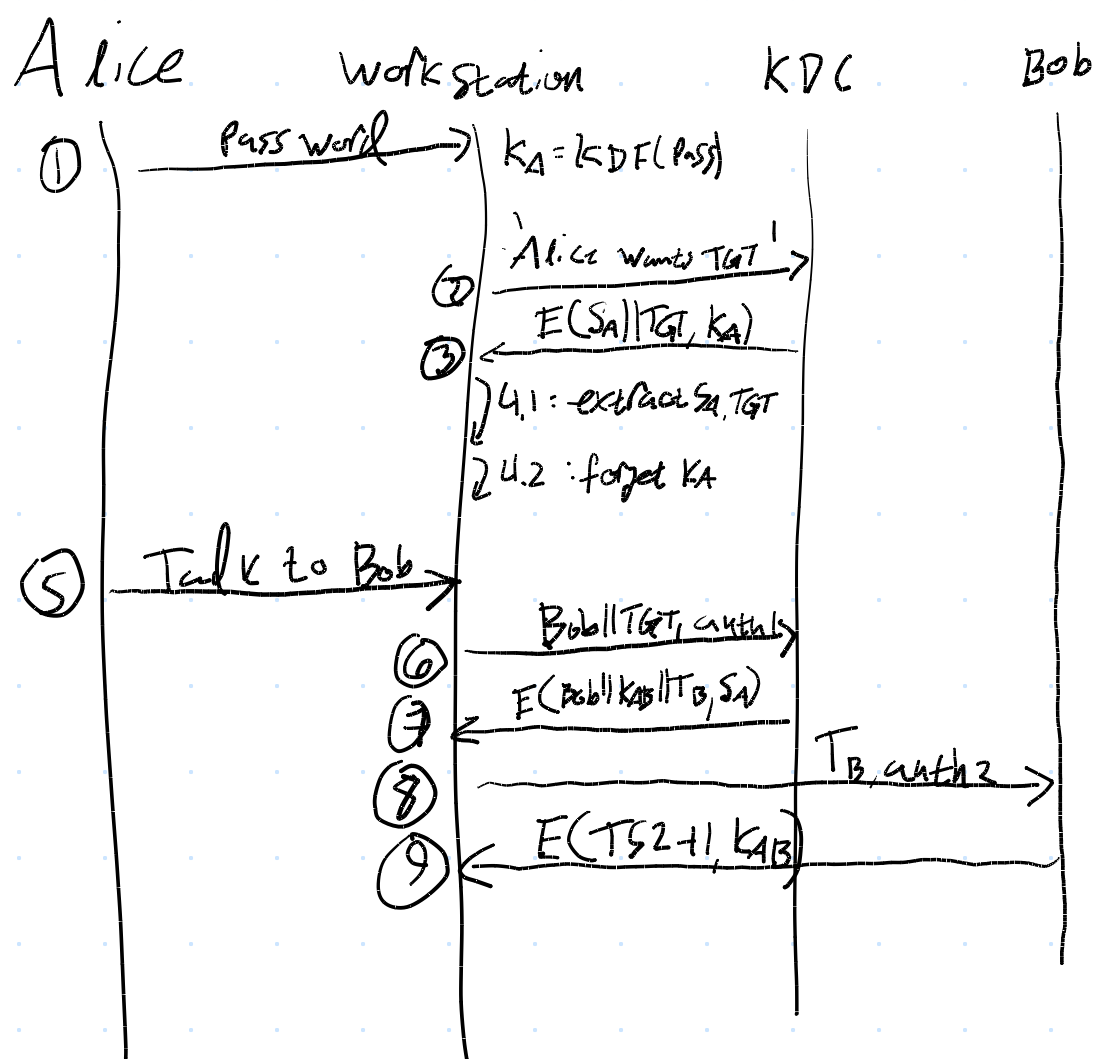 Alice Workstation KDC Bob
① Password K_A = KDF(Pass)
'Alice wants TGT'
②
E(S_A||TGT, K_A)
③
4.1: extract S_A, TGT
4.2: forget K_A
⑤ Talk to Bob
Bob||TGT, auth1
⑥
E(Bob||K_AB||T_B, S_A)
⑦
T_B, auth2
⑧
E(TS2+1, K_AB)
⑨